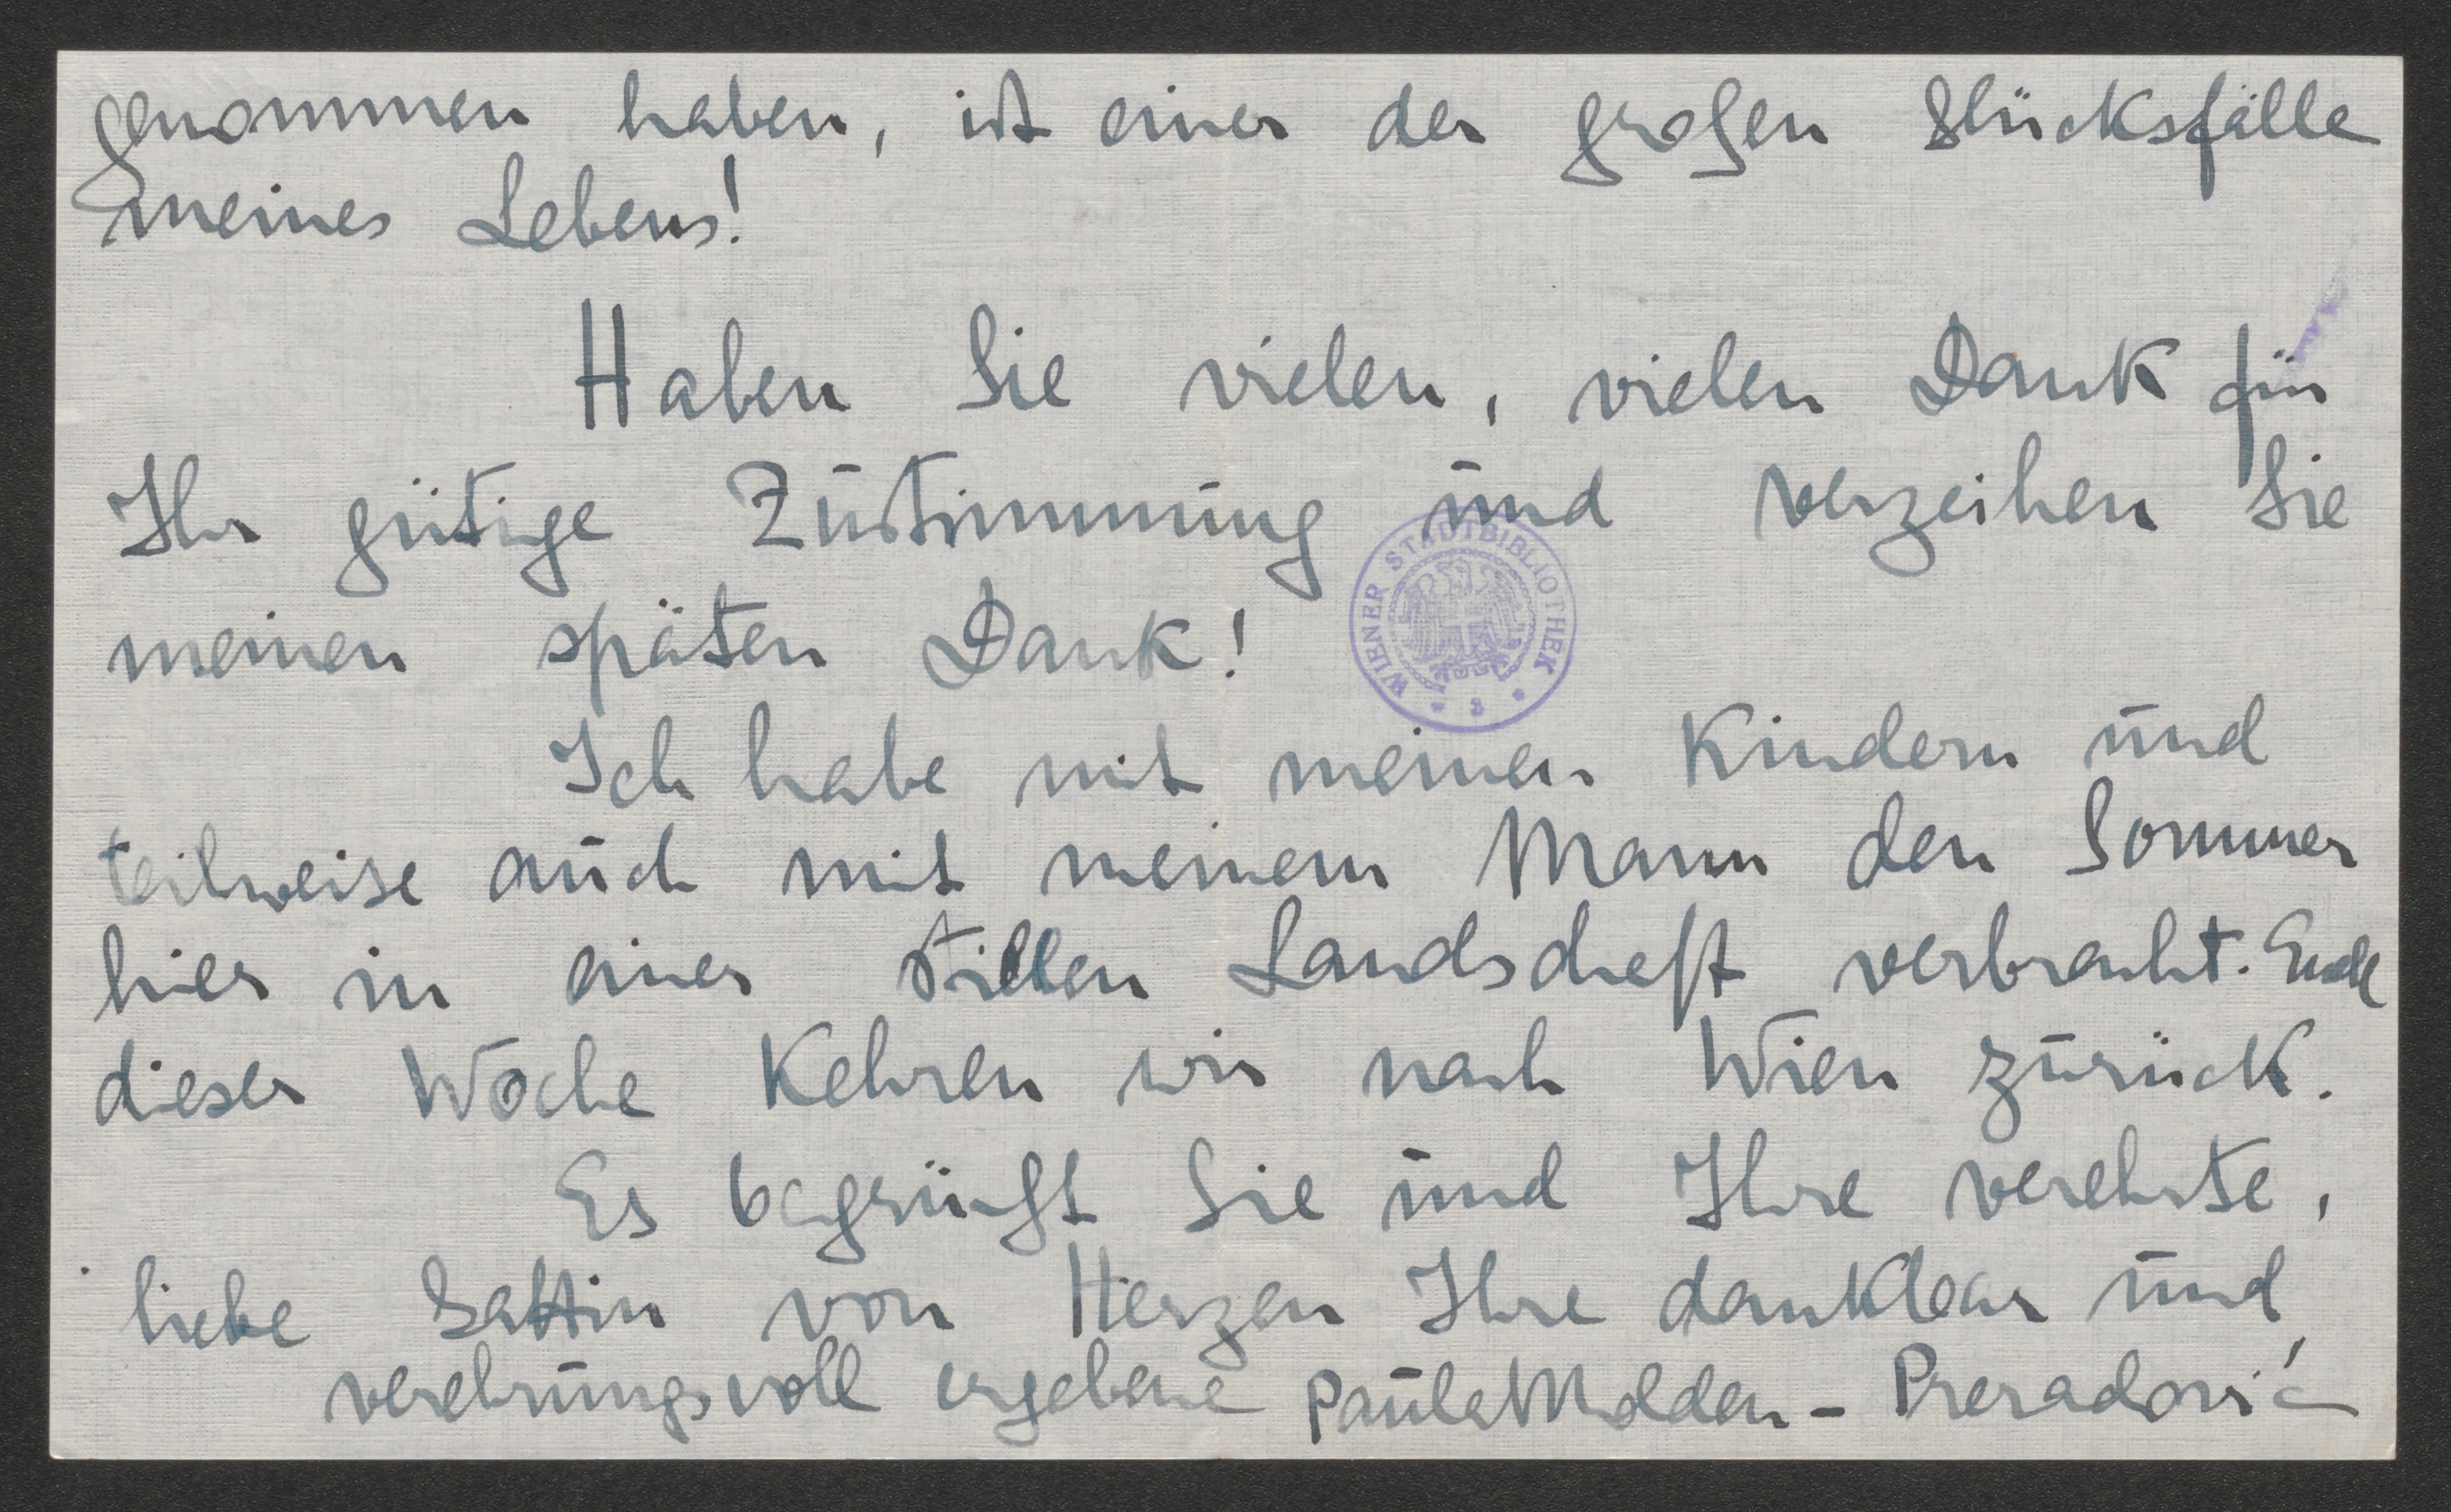 genommen haben, ist einer der großen Glücksfälle
meines Lebens!
Haben Sie vielen, vielen Dank für
Ihr gütige Zustimmung und verzeihen Sie
meinen späten Dank!
WIENER STADTBIBLIOTHEK
Ich habe mit meinen Kindern und
teilweise auch mit meinem Mann den Sommer
hier in einer stillen Landschaft verbracht. Ende
dieser Woche kehren wir nach Wien zurück.
Es begrüßt Sie und Ihre verehrte,
liebe Gattin von Herzen Ihre dankbar und
verehrungsvoll ergebene Paula Molden - Preradović